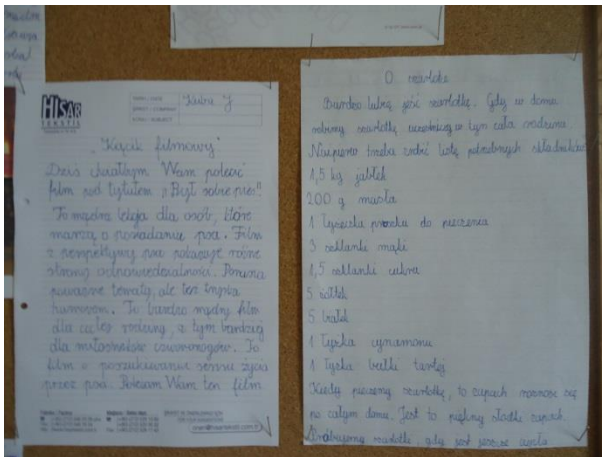 HISAR
TEKSTİL
"Kącik filmowy"
Dziś chciałbym Wam polecić
film pod tytułem "Był sobie pies"
To mądra lekcja dla osób, które
marzą o posiadaniu psa. Film
z perspektywy psa pokazuje różne
strony odpowiedzialności. Porusza
poważne tematy, ale też tryska
humorem. To bardzo mądry film
dla całej rodziny, a tym bardziej
dla miłośników czworonogów. To
film o poszukiwaniu sensu życia
przez psa. Polecam Wam ten film
O szarlotce
Bardzo lubię jeść szarlotkę. Gdy w domu
robimy szarlotkę uczestniczy w tym cała rodzina.
Najpierw trzeba zrobić listę potrzebnych składników
1,5 kg jabłek
200 g masła
1 łyżeczka proszku do pieczenia
3 szklanki mąki
1,5 szklanki cukru
5 żółtek
5 białek
1 łyżka cynamonu
1 łyżka bułki tartej
Kiedy pieczemy szarlotkę, to zapach roznosi się
po całym domu. Jest to piękny słodki zapach.
szarlotkę, gdy jest jeszcze ciepła